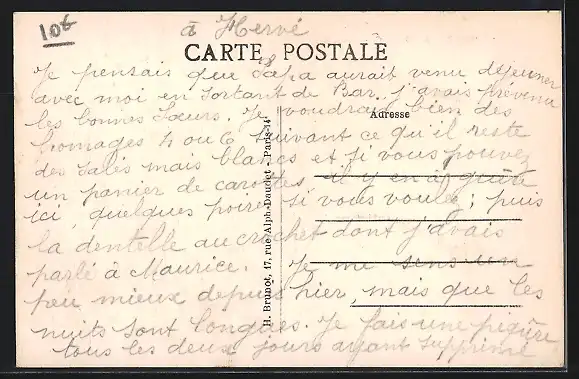 10f
à Hervé
CARTE POSTALE
Je pensais que Papa aurait venu déjeuner
avec moi en sortant de Bar. j'avais prévenu
les bonnes Sœurs. Je voudrais bien des
Adresse
fromages 4 ou 6 suivant ce qu'il reste
des salés mais blancs et si vous pouvez
un panier de carottes il y en a guère
ici, quelques poires si vous voulez; puis
la dentelle au crochet dont j'avais
parlé à Maurice. Je me sens un
peu mieux depuis hier, mais que les
nuits sont longues. Je fais une piqûre
tous les deux jours ayant supprimé
H. Brunot, 17, rue Alph-Daudet - Paris-14e